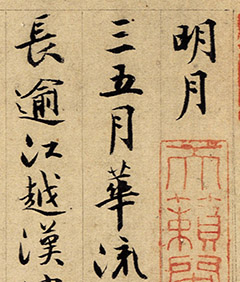 明月
三五月華流
長逾江越漢
天籟閣